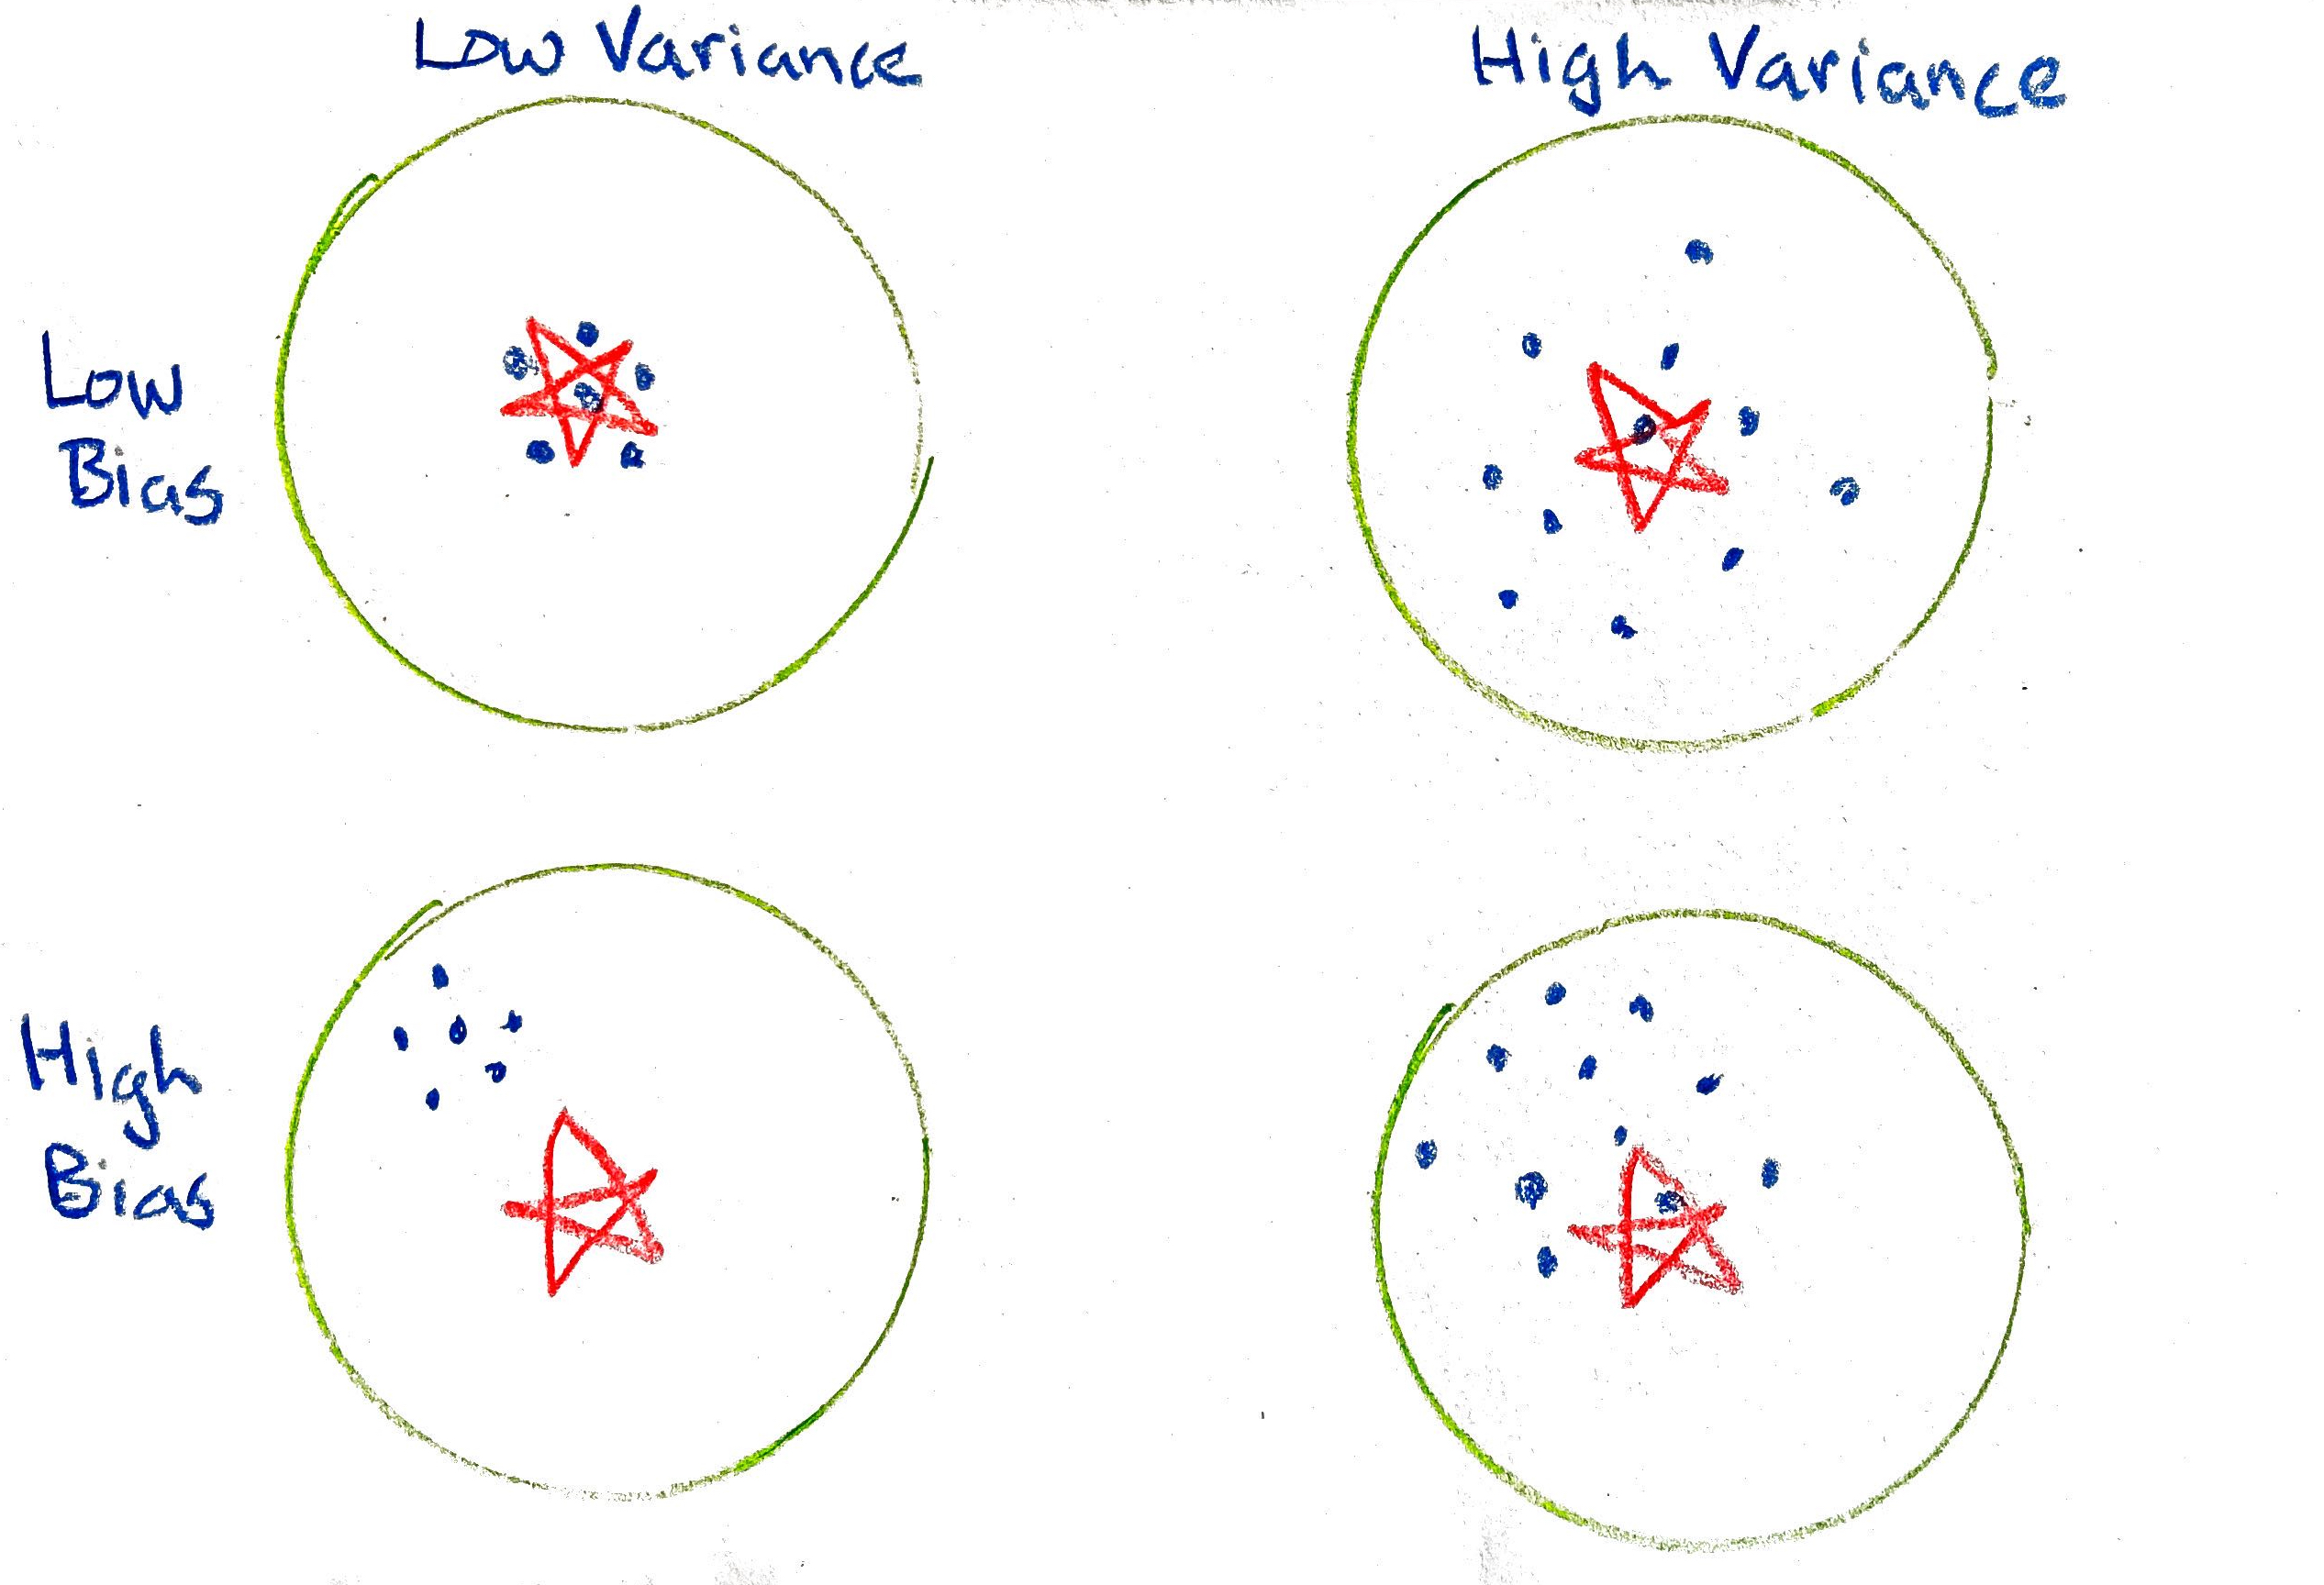 Low Variance
High Variance
Low
Bias
High
Bias